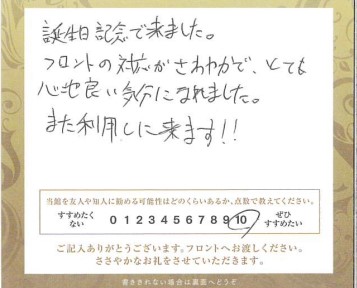 誕生日記念で来ました。
フロントの対応がさわやかで、とても
心地良い気分になれました。
また利用しに来ます!!
当館を友人や知人に勧める可能性はどのくらいあるか、点数で教えてください。
すすめたく
ない
0 1 2 3 4 5 6 7 8 9 10
ぜひ
すすめたい
ご記入ありがとうございます。フロントへお渡しください。
ささやかなお礼をさせていただきます。
書ききれない場合は裏面へどうぞ